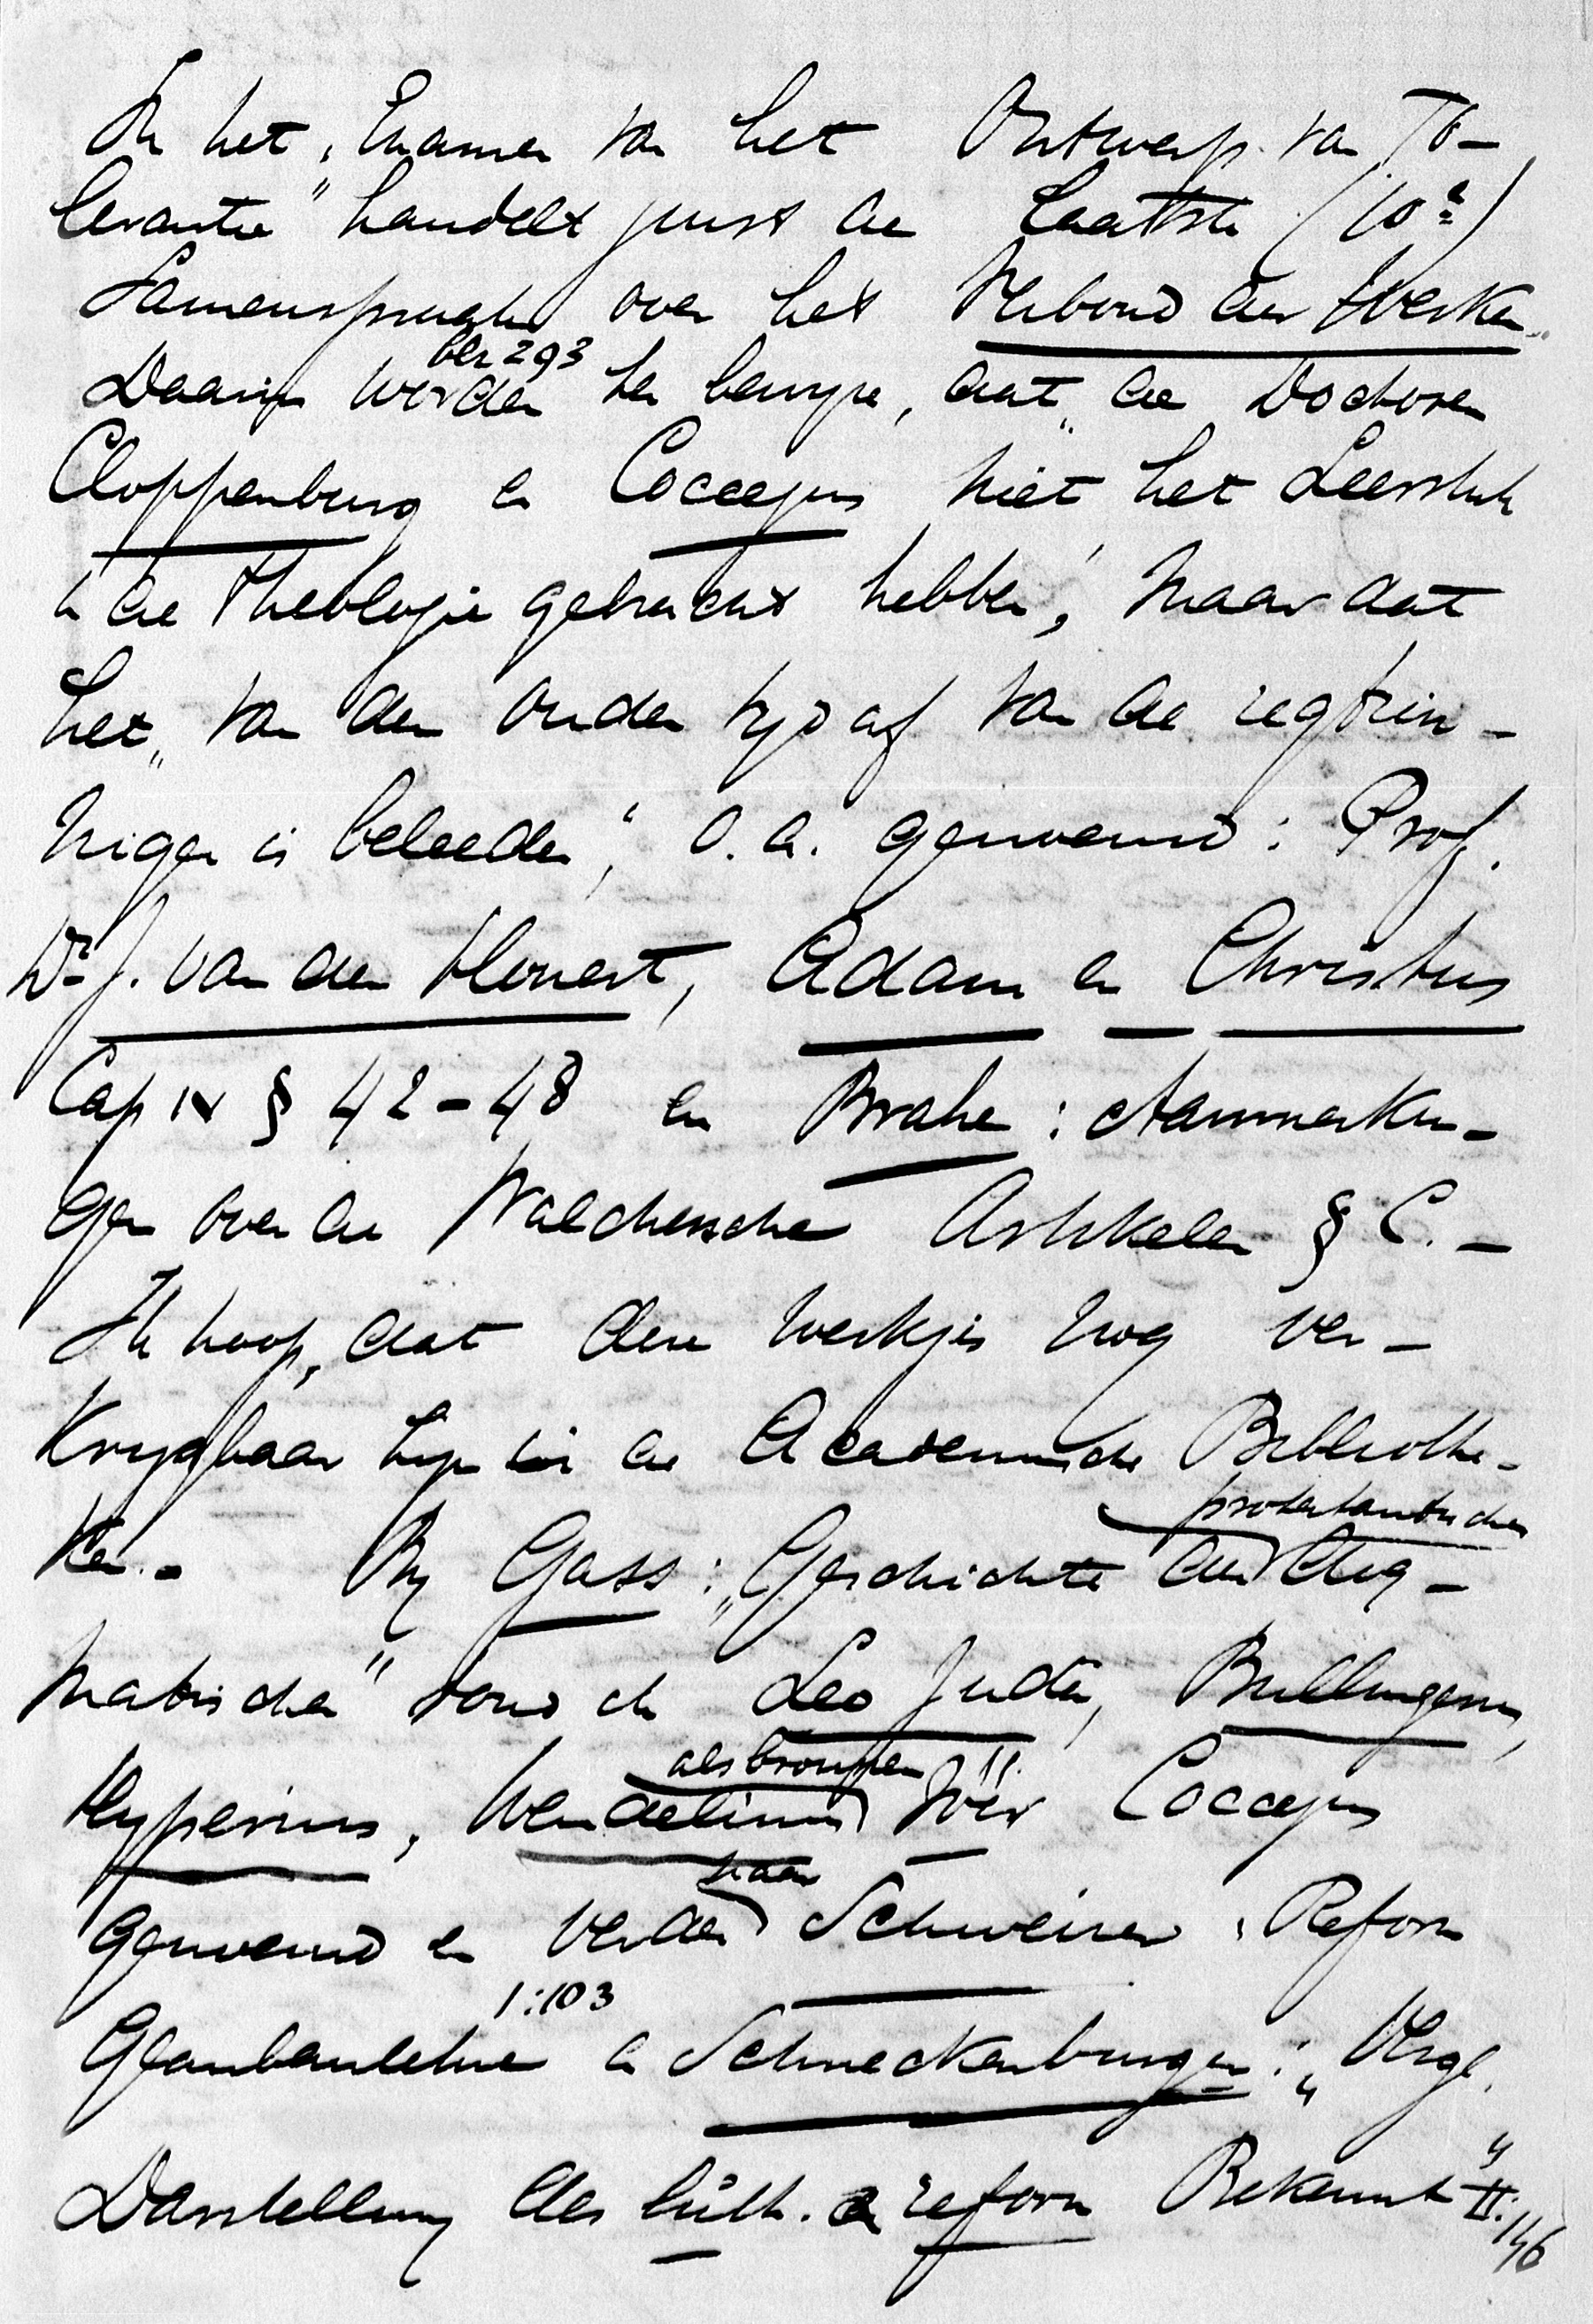 In het „Examen van het Ontwerp van To-
lerantie" handelt juist de laatste (10e)
Samenspraak over het Verbond der Werken.
Daarin worden blz 293 ten bewijze, dat „de Doctoren
Cloppenburg en Coccejus niet het Leerstuk
in de Theologie gebracht hebben", maar dat
het „van den ouden tijd af van de regtzin-
nigen is beleeden", o.a. genoemd: Prof.
Dr J. van den Honert, Adam en Christus
Cap IV § 42-48 en Brahe: Aanmerkin-
gen over de Walchersche Artikelen § C. -
Ik hoop, dat deze werkjes nog ver-
krygbaar zyn in de Academische Bibliothe-
ken. - By Gass: „Geschichte der protestantischen Dog-
matischen" vond ik Leo Judä, Bullingerus,
Hyperius, Wendelinus als bronnen vóór Coccejus
genoemd en verder naar Schweizer, Reform
Glaubenslehre 1:103 en Schneckenburger: „Vergl.
Darstellung des lüth. en reform Bekennt" II:146